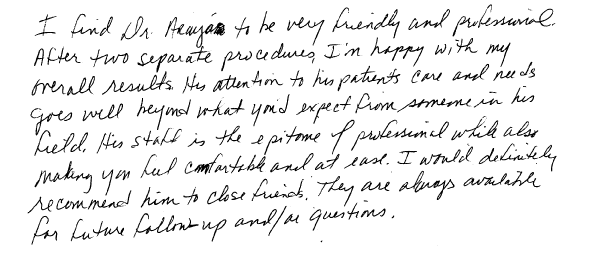 I find Dr. to be very friendly and professional.
After two separate procedures, I'm happy with my
overall results. His attention to his patients care and needs
goes well beyond what you'd expect from someone in his
field. His staff is the epitome of professional while also
making you feel comfortable and at ease. I would definitely
recommend him to close friends. They are always available
for future follow-up and/or questions.